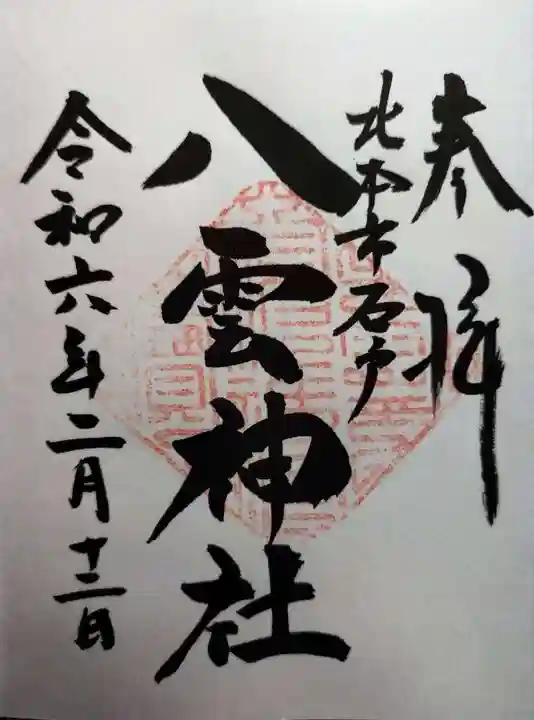 奉拝
北本市石戸
八雲神社
令和六年二月十二日